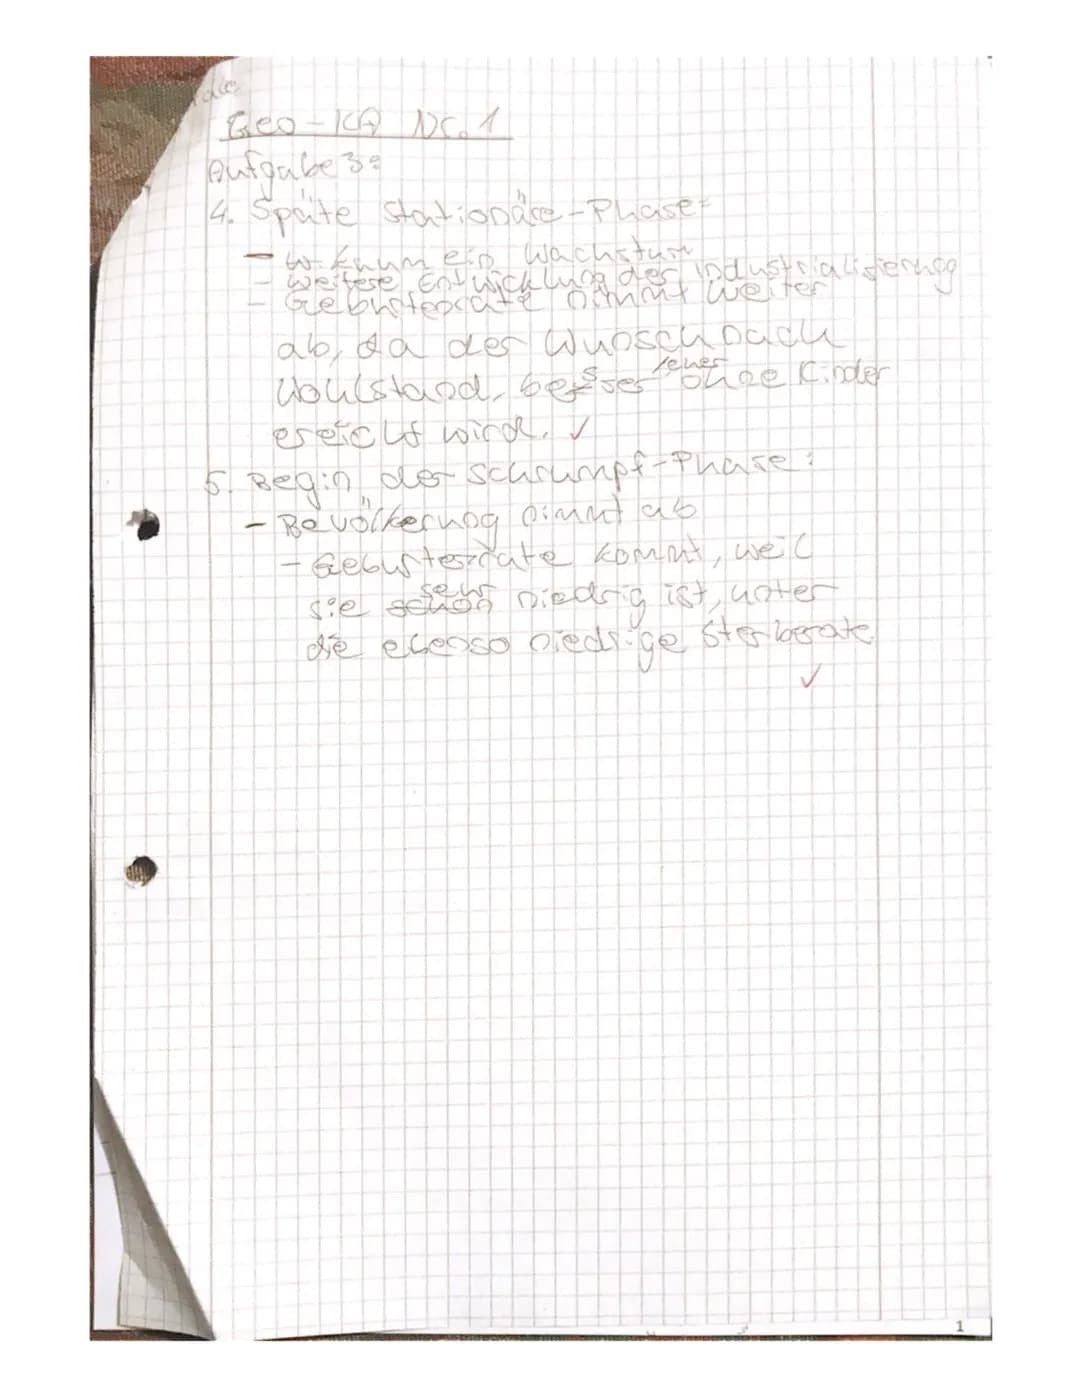 Geo-KA Nr. 1
Aufgabe 3:
4. Späte stationäre-Phase:
- kaum ein Wachstum
- weitere Entwicklung der Industrialisierung
- Geburtenrate nimmt weiter
ab, da der Wunsch nach
Wohlstand, besser ohne Kinder
ereicht wird. ✓
5. Begin der Schrumpf-Phase:
- Bevölkerung nimmt ab
- Geburtesrate kommt, weil
sehr
sie schon niedrig ist, unter
die ebenso niedrige Sterberate
✓
1